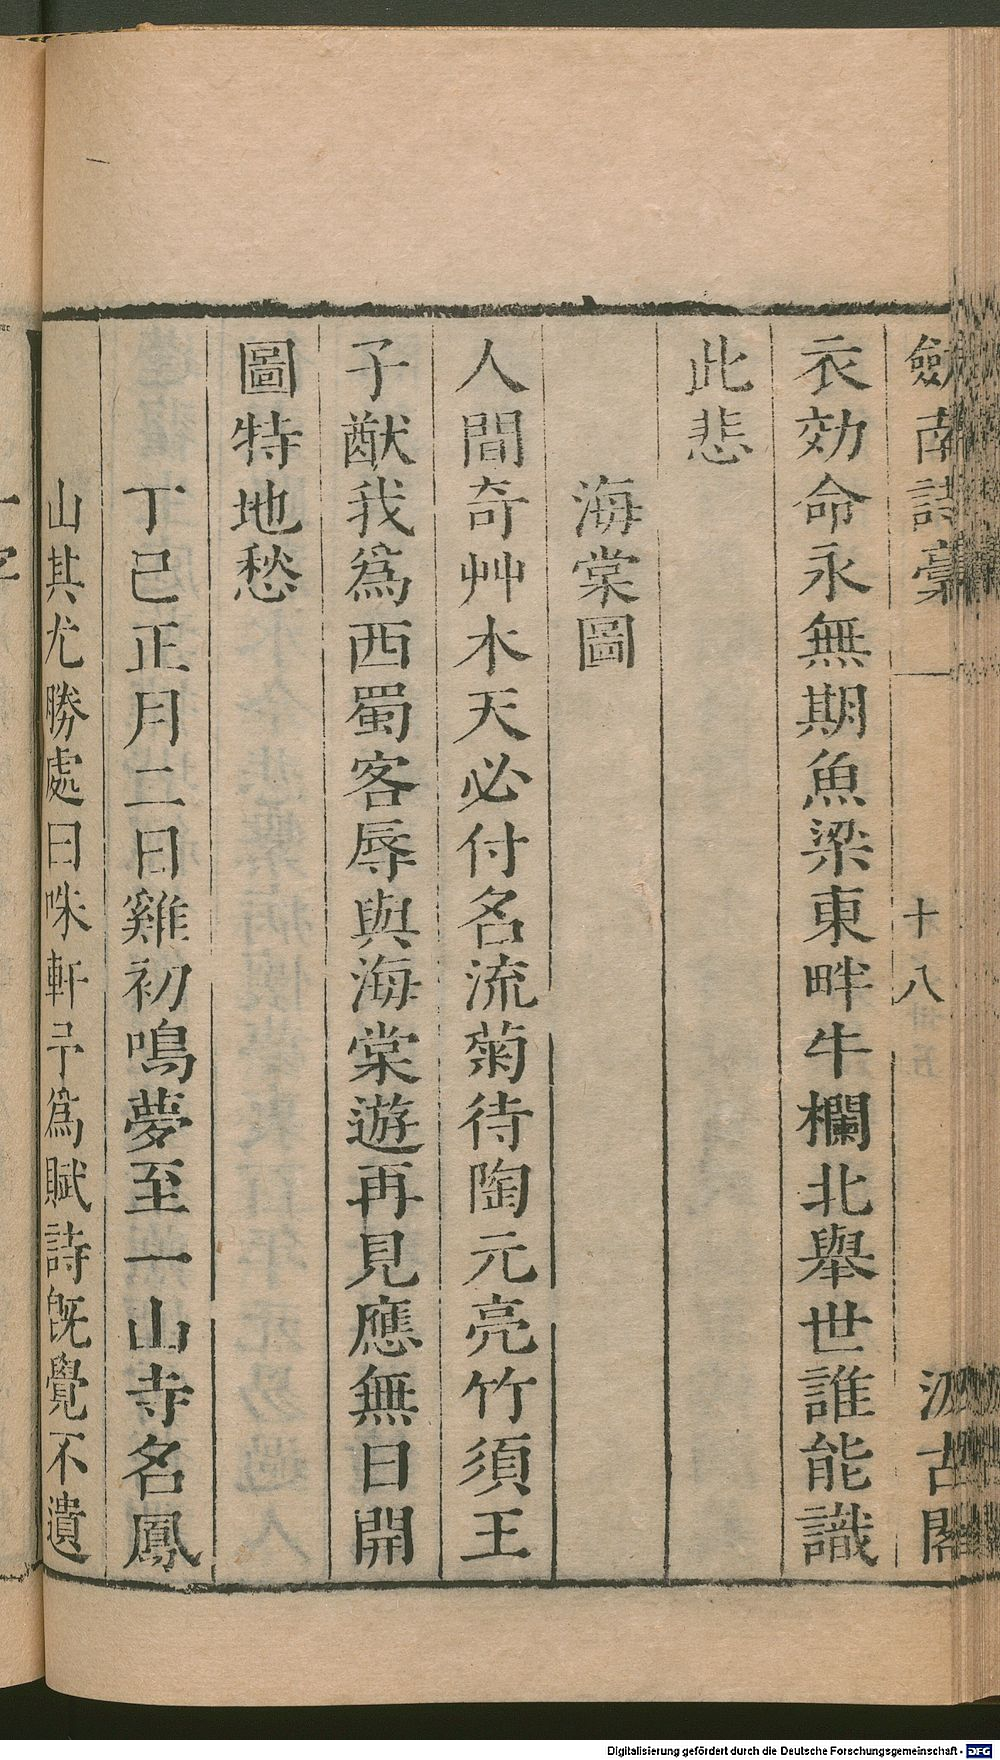 劒南詩稾 十八 汲古閣
衣効命永無期魚梁東畔牛欄北舉世誰能識
此悲
海棠圖
人間奇艸木天必付名流菊待陶元亮竹須王
子猷我爲西蜀客辱與海棠遊再見應無日開
圖特地愁
丁巳正月二日雞初鳴夢至一山寺名鳳
山其尤勝處曰咮軒予爲賦詩旣覺不遺
一字
Digitalisierung gefördert durch die Deutsche Forschungsgemeinschaft - DFG